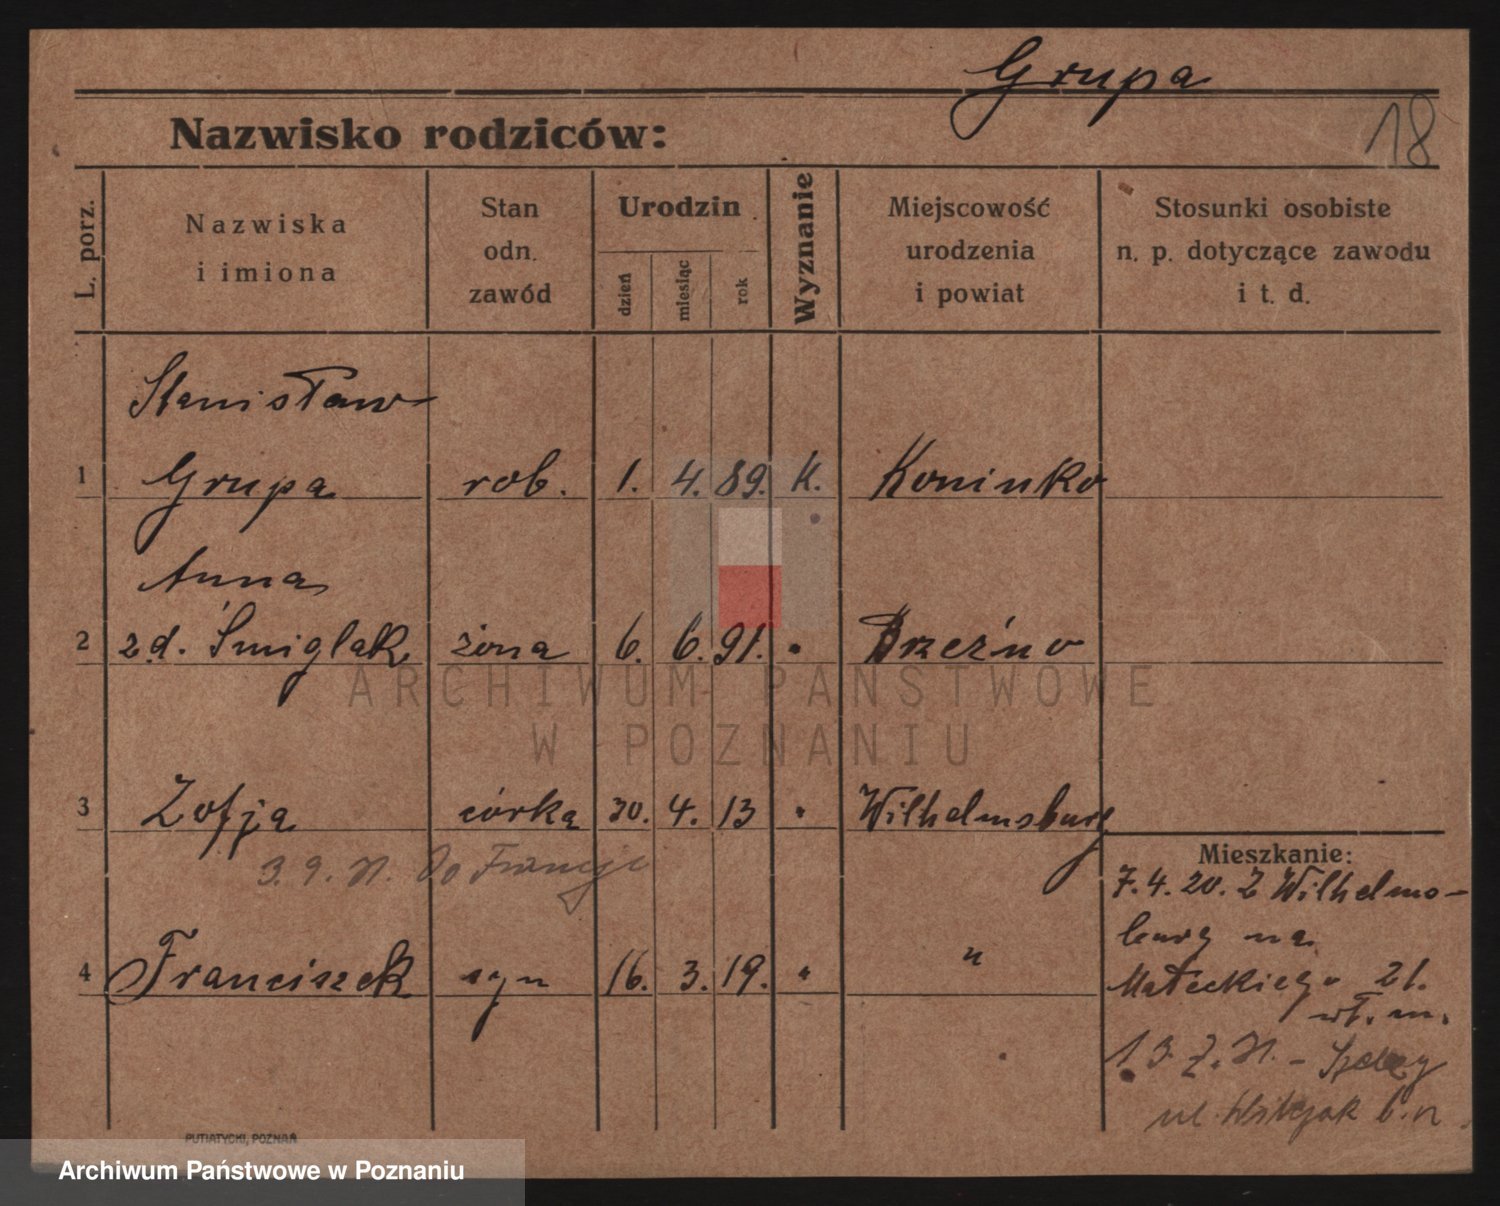 Grupa
18
Nazwisko rodziców:
L. porz.
Nazwiska
i imiona
Stan
odn.
zawód
Urodzin
dzień
miesiąc
rok
Wyznanie
Miejscowość
urodzenia
i powiat
Stosunki osobiste
n. p. dotyczące zawodu
i t. d.
Stanisław
1 Grupa rob. 1. 4. 89. K. Koninko
Anna
2 z d. Śmiglak żona 6. 6. 91. " Brzeźno
ARCHIWUM PAŃSTWOWE
W POZNANIU
3 Zofja córka 30. 4. 13 " Wilhelmsburg
3. 9. Do Francji
Mieszkanie:
7.4.20. Z Wilhelms-
burg na
4 Franciszek syn 16. 3. 19. " "
Małeckiego 21.
wł. m.
ul.
PUTIATYCKI, POZNAŃ
Archiwum Państwowe w Poznaniu